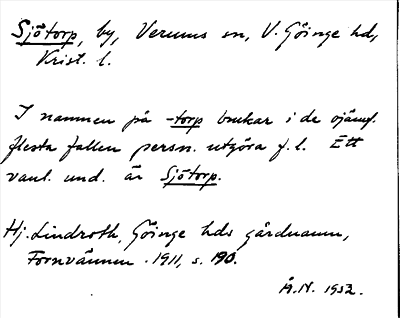 Sjötorp, by, Verums sn, V. Göinge hd,
Krist. l.
I namnen på -torp brukar i de ojämf.
flesta fallen persn. utgöra f.l. Ett
vanl. und. är Sjötorp.
Hj. Lindroth, Göinge hds gårdnamn,
Fornvännen 1911, s. 190.
Å.N. 1952.